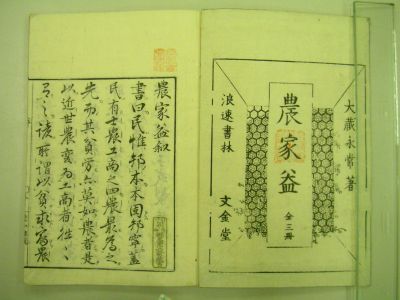 大藏永常著
農家益
全三冊
浪速書林
文金堂
農家益叙
書曰民惟邦本本固邦寧蓋
民有士農工商四農最為之
先而其貧勞亦莫如農者是
以近世農變為工商者往〻
有之諺所謂以貧求富農